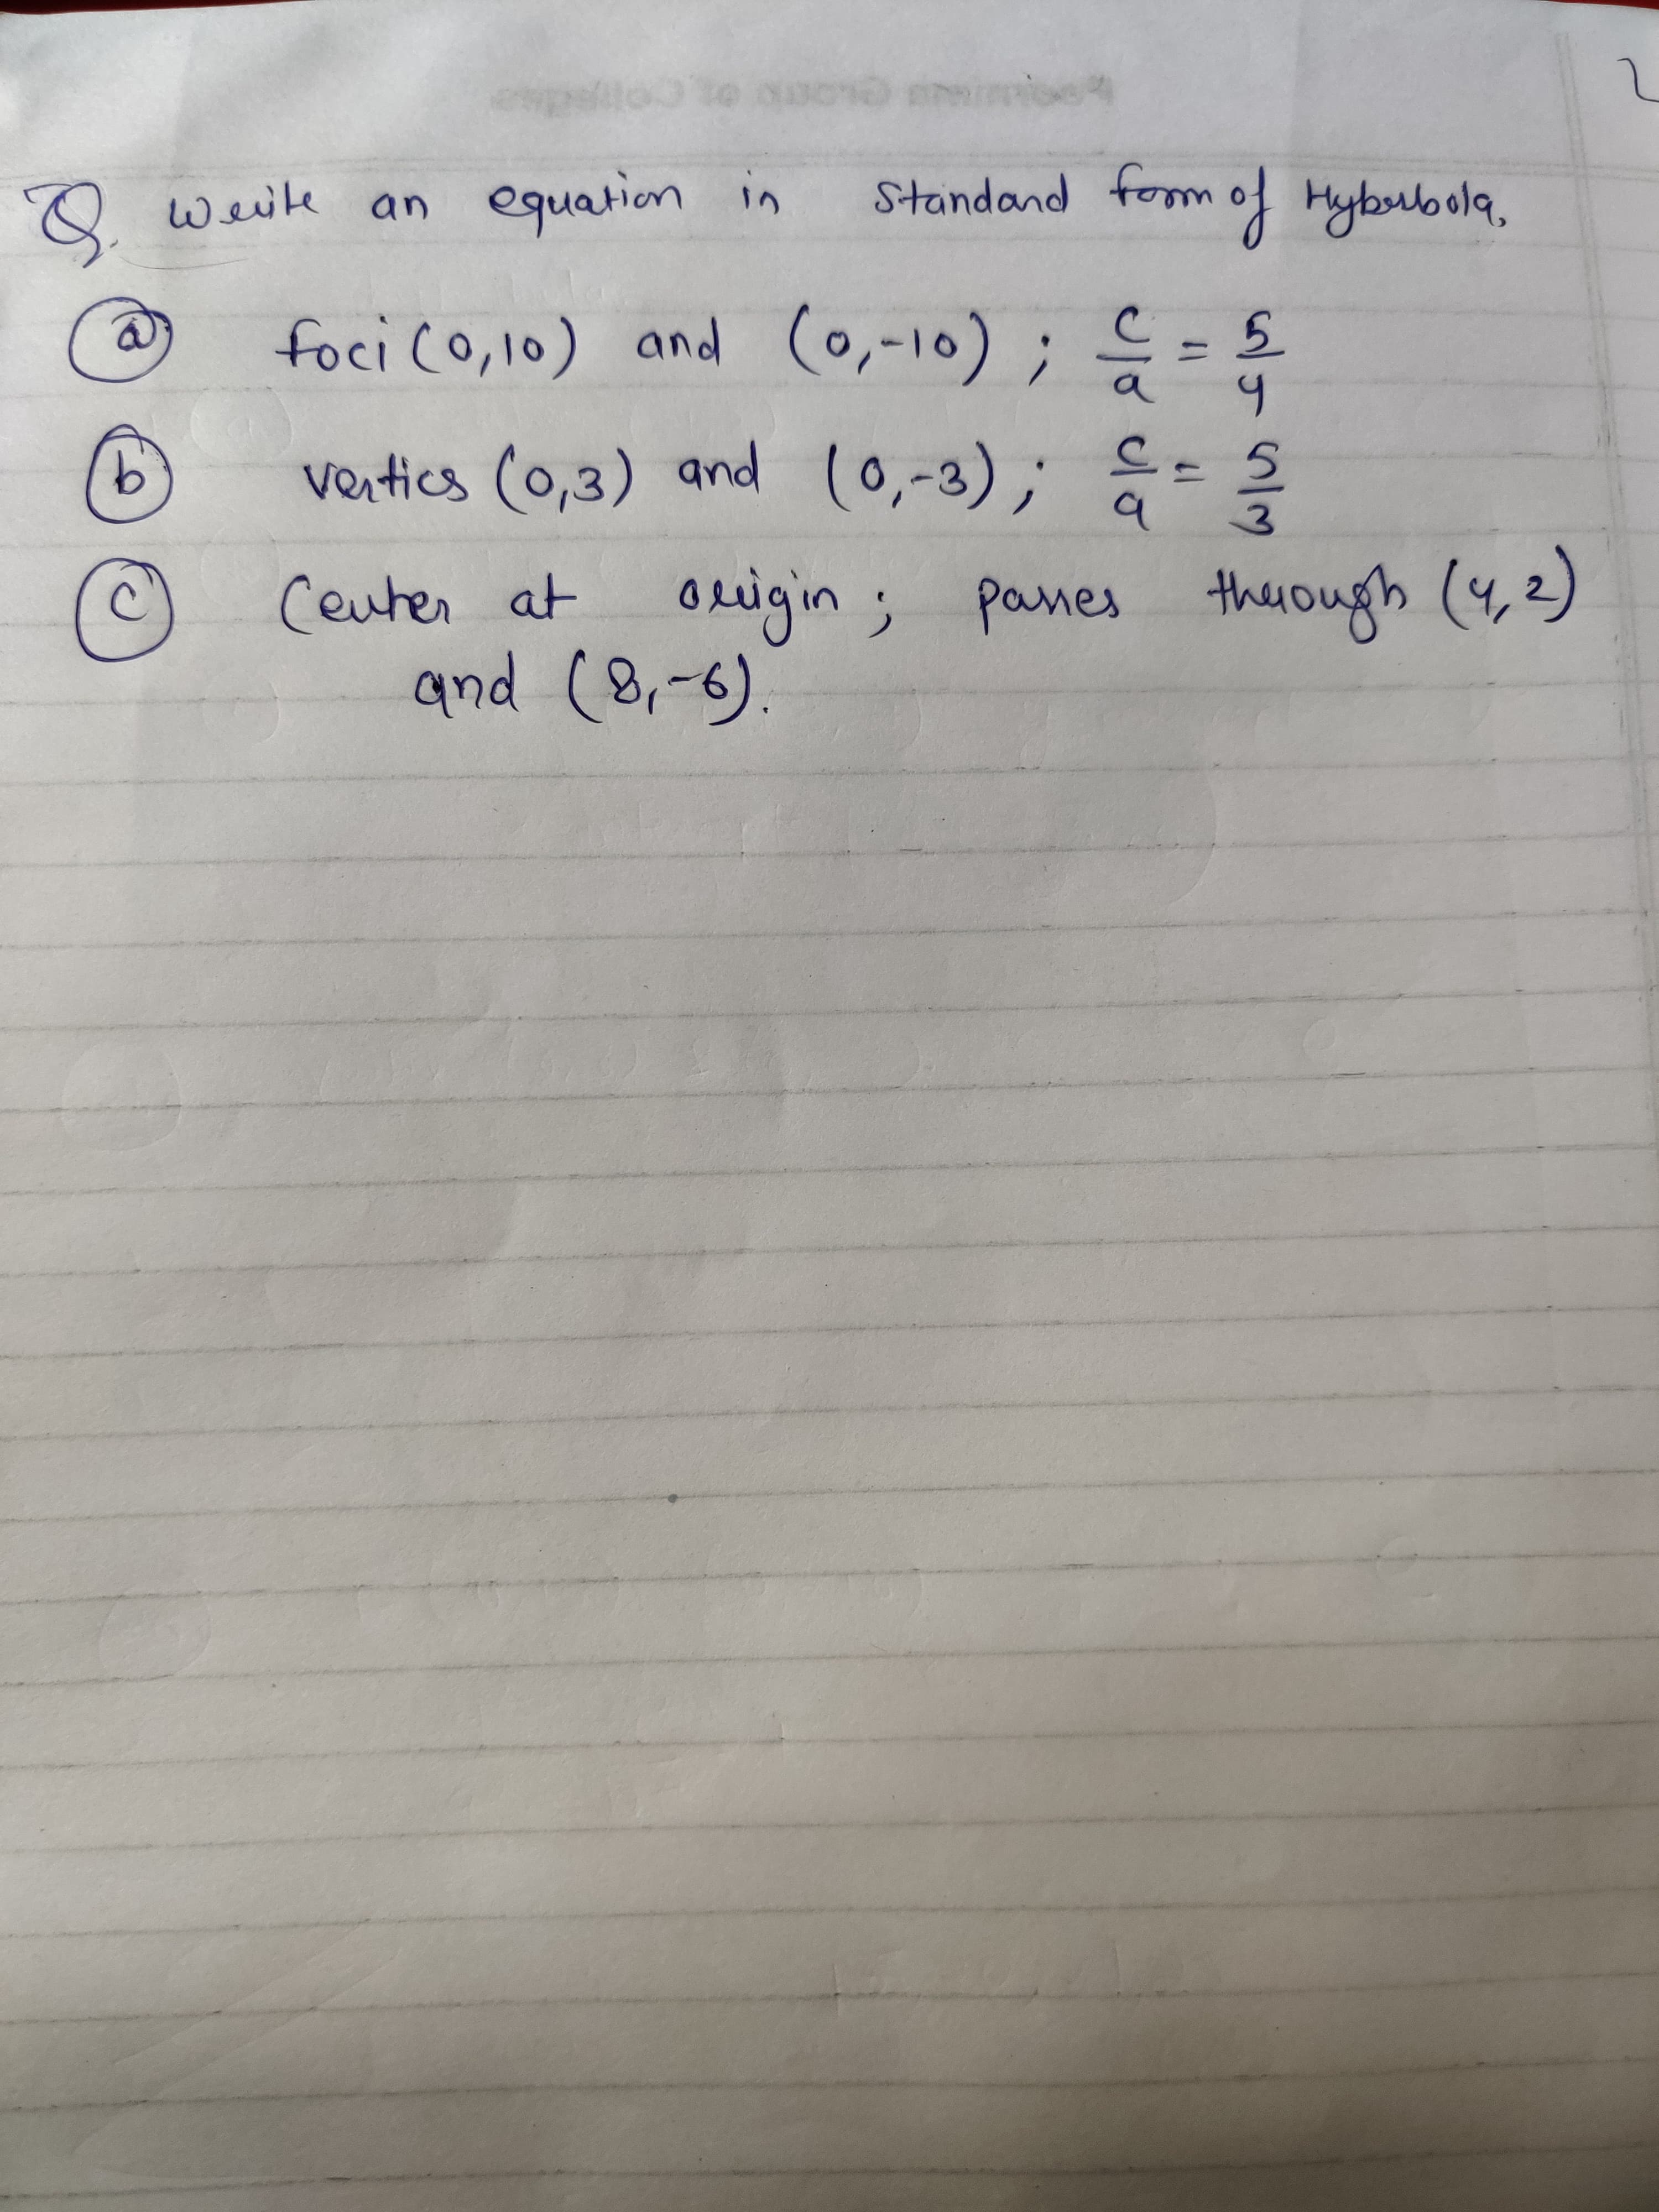 Q. Write an equation in Standard form of Hyberbola.
(a) foci (0,10) and (0,-10) ; c/a = 5/4
(b) vertics (0,3) and (0,-3) ; c/a = 5/3
(c) Center at origin ; passes through (4,2)
and (8,-6).